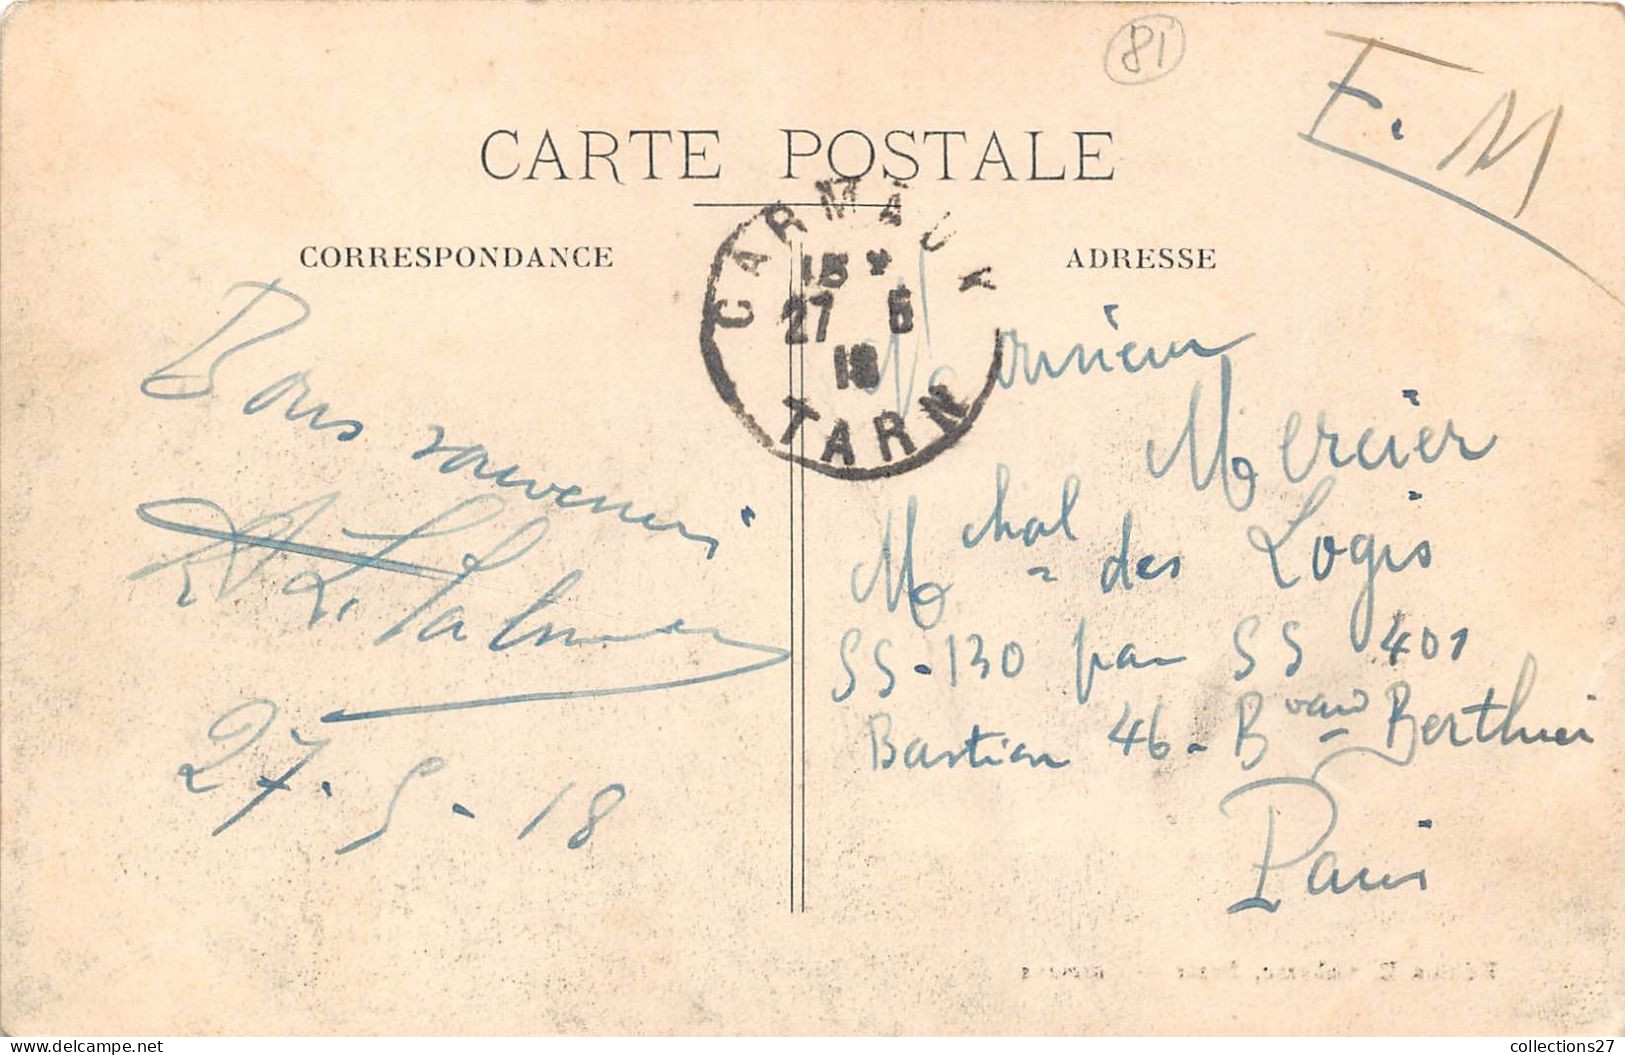 81
F. M
CARTE POSTALE
CORRESPONDANCE
ADRESSE
CARMAUX
15 *
27 5
18
TARN
Bons souvenirs
27-5-18
Monsieur
Mercier
Mchal des Logis
SS-130 par SS 401
Bastion 46 - Bvard Berthier
Paris
collections27